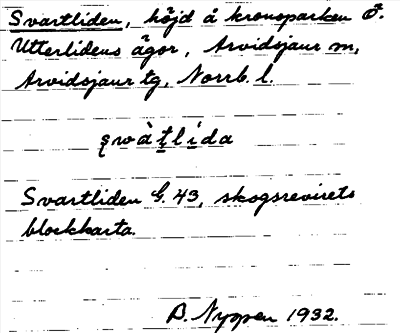 Svartliden, höjd å kronoparken Ö.
Utterlidens ägor, Arvidsjaur m,
Arvidsjaur tg, Norrb. l.
Svartliden G. 43, skogsrevirets
blockkarta.
1932.